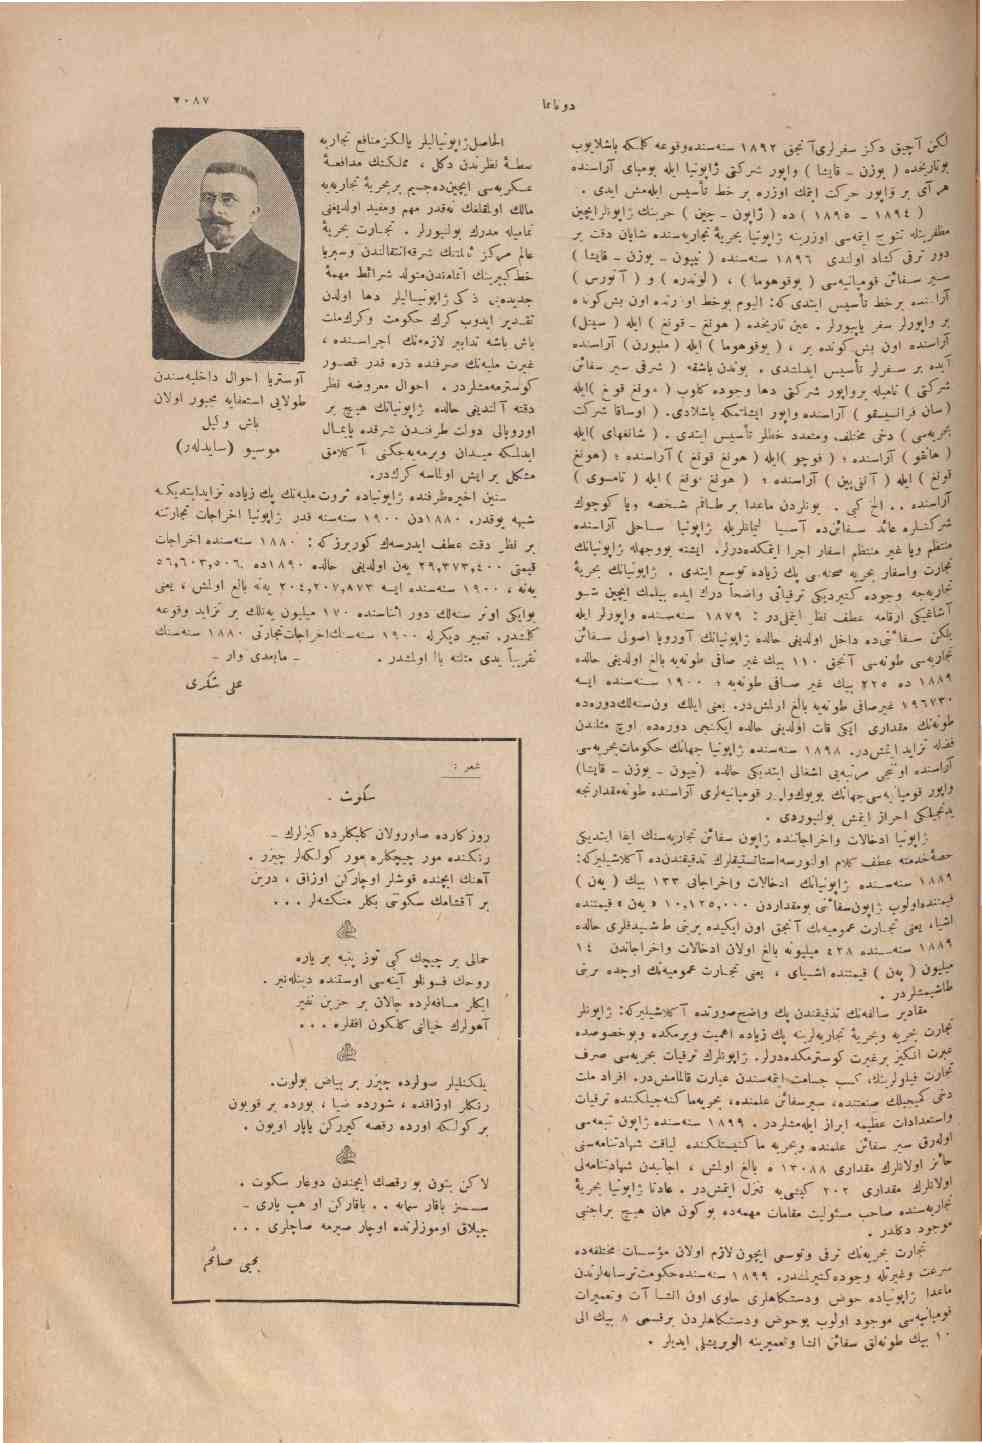 دوناما
٢٠٨٧
لكن آچيق دكز سفرلرى آنجق ١٨٩٢ سنه‌سنده وقوعه كلمكه باشلايوب
بو تاريخده ( يوزن - قايشا ) واپور شركتى ژاپونيا ايله بومباى آراسنده
هر آى بر واپور حركت ايتمك اوزره بر خط تأسيس ايله‌مش ايدى .
( ١٨٩٤ - ١٨٩٥ ) ده ( ژاپون - چين ) حربنك ژاپونلر ايچين
مظفريتله تتويج ايتمه‌سى اوزرينه ژاپونيا بحريهٔ تجاريه‌سنده شايان دقت بر
دور ترقى كشاد اولندى ١٨٩٦ سنه‌سنده ( نيپون - يوزن - قايشا )
سير سفائن قومپانيه‌سى ( يوقوهوما ) ، ( لوندره ) و ( آنورس )
آراسنده بر خط تأسيس ايتدى كه : اليوم بو خط اوزرنده اون بش كونده
بر واپورلر سفر ياپيورلر . عين تاريخده ( هونغ - قونغ ) ايله ( سيتل )
آراسنده اون بش كونده بر ، ( يوقوهوما ) ايله ( ملبورن ) آراسنده
آيده بر سفرلر تأسيس ايدلمشدى . بوندن باشقه ( شرقى سير سفائن
شركتى ) ناميله بر واپور شركتى دها وجوده كلوب ( هونغ قونغ ) ايله
( سان فرانسيسقو ) آراسنده واپور ايشلتمكه باشلادى . ( اوساقا شركت
بحريه‌سى ) دخى مختلف ومتعدد خطلر تأسيس ايتدى . ( شانغهاى ) ايله
( هانقو ) آراسنده ؛ ( فوچو ) ايله ( هونغ قونغ ) آراسنده ؛ ( هونغ
قونغ ) ايله ( آنپين ) آراسنده ؛ ( هونغ قونغ ) ايله ( تامسوى )
آراسنده . . الخ كبى . بونلردن ماعدا بر طاقم شخصه ويا كوچوك
شركتلره عائد سفائن ده آسيا ليمانلريله ژاپونيا ساحلى آراسنده
منتظم ويا غير منتظم اسفار اجرا ايتمكده‌درلر . ايشته بو وجهله ژاپونيانك
تجارت واسفار بحريه صحنه‌سى پك زياده توسع ايتدى . ژاپونيانك بحريهٔ
تجاريه‌جه وجوده كتيرديكى ترقياتى واضحاً درك ايده بيلمك ايچين شو
آشاغيكى ارقامه عطف نظر ايتملى‌در : ١٨٧٩ سنه‌سنده واپورلر ايله
يلكن سفائنى ده داخل اولديغى حالده ژاپونيانك آوروپا اصولى سفائن
تجاريه‌سى طونه‌سى آنجق ١١٠ بيك غير صافى طونه‌يه بالغ اولديغى حالده
١٨٨٩ ده ٢٢٥ بيك غير صافى طونه‌يه ؛ ١٩٠٠ سنه‌سنده ايسه
١٩٦٧٣٠ غير صافى طونه‌يه بالغ اولمش‌در . يعنى ايلك اون سنه‌لك دوره‌ده
طونه‌نك مقدارى ايكى قات اولديغى حالده ايكنجى دوره‌ده اوچ مثلندن
فضله تزايد ايتمش‌در . ١٨٩٨ سنه‌سنده ژاپونيا جهانك حكومات بحريه‌سى
آراسنده اونجى مرتبه‌يى اشغالى ايتديكى حالده ( نيپون - يوزن - قايشا )
واپور قومپانيه‌سى جهانك بويوك واپور قومپانيه‌لرى آراسنده طونه مقدارنجه
يدنجيلكى احراز ايتمش بولنيوردى .
ژاپونيا ادخالات واخراجاتنده ژاپون سفائن تجاريه‌سنك ايفا ايتديكى
حصهٔ خدمته عطف كلام اولنورسه استاتستيقلرك تدقيقندن ده آكلاشيلير كه :
١٨٨٩ سنه‌سنده ژاپونيانك ادخالات واخراجاتى ١٣٣ بيك ( يه‌ن )
قيمتنده اولوب ژاپون سفائنى بو مقداردن ١٠,١٢٥,٠٠٠ « يه‌ن » قيمتنده
اشيا ، يعنى تجارت عموميه‌نك آنجق اون ايكيده برينى طاشيدقلرى حالده
١٨٨٩ سنه‌سنده ٤٢٨ ميليونه بالغ اولان ادخالات واخراجاتدن ١٤
ميليون ( يه‌ن ) قيمتنده اشياى ، يعنى تجارت عموميه‌نك اوچده برينى
طاشيمشلردر .
مقادير سالفه‌نك تدقيقندن پك واضح صورتده آكلاشيلير كه : ژاپونلر
تجارت بحريه وبحريهٔ تجاريه‌لرينه پك زياده اهميت ويرمكده وبو خصوصده
غيرت انكيز بر غيرت كوسترمكده‌درلر . ژاپونلرك ترقيات بحريه‌سى صرف
تجارت فيلولرينك كسب جسامت ايتمه‌سندن عبارت قالمامش‌در . افراد ملت
دخى كميجيلك صنعتنده ، سير سفائن علمنده ، بحريه ماكنه‌جيلكنده ترقيات
واستعدادات عظيمه ابراز ايله‌مشلردر . ١٨٩٩ سنه‌سنده ژاپون تبعه‌سى
اوله‌رق سير سفائن علمنده وبحريه ماكنيستلكنده لياقت شهادتنامه‌سنى
حائز اولانلرك مقدارى ١٣٠٨٨ ه بالغ اولمش ، اجانبدن شهادتنامه‌لى
اولانلرك مقدارى ٢٠٢ كيشى‌يه تنزل ايتمش‌در . عادتا ژاپونيا بحريهٔ
تجاريه‌سنده صاحب مسئوليت مقامات مهمه‌ده بوكون همان هيچ بر اجنبى
موجود دكلدر .
تجارت بحريه‌نك ترقى وتوسعى ايچون لازم اولان مؤسسات مختلفه‌ده
سرعت وغيرتله وجوده كتيرلمشدر . ١٨٩٩ سنه‌سنده حكومت ترسانه‌لرندن
ماعدا ژاپونياده حوض ودستكاهلرى حاوى اون انشاآت وتعميرات
قومپانيه‌سى موجود اولوب بو حوض ودستكاهلردن برقسمى ٨ بيك الى
١٠ بيك طونه‌لق سفائن انشا وتعميرينه الويريشلى ايديلر .
الحاصل ژاپونياليلر يالكز منافع تجاريه
نقطهٔ نظرندن دكل ، مملكتك مدافعهٔ
عسكريه‌سى ايچين ده جسيم بر بحريهٔ تجاريه‌يه
مالك اولمقلغك نه‌قدر مهم ومفيد اولديغنى
تماميله مدرك بولنيورلر . تجارت بحريهٔ
عالم مركز ثقلتنك شرقه انتقالندن وسبريا
خط كبيرينك اتمامندن متولد شرائط مهمهٔ
جديده‌يى ذكى ژاپونياليلر دها اولدن
تقدير ايدوب كرك حكومت وكرك ملت
باش باشه تدابير لازمه‌نك اجراسنده ،
غيرت مليه‌نك صرفنده ذره قدر قصور
كوسترمه‌مشلردر . احوال معروضه نظر
دقته آلنديغى حالده ژاپونيانك هيچ بر
اوروپالى دولت طرفندن شرقده پايمال
ايدلمكه ميدان ويرمه‌يه‌جكنى آكلامق
مشكل بر ايش اولماسه كركدر .
سنين اخيره ظرفنده ژاپونياده ثروت مليه‌نك پك زياده تزايد ايتديكنه
شبهه يوقدر . ١٨٨٠ دن ١٩٠٠ سنه‌سنه قدر ژاپونيا اخراجات تجارتنه
بر نظر دقت عطف ايدرسه‌ك كوريرز كه : ١٨٨٠ سنه‌سنده اخراجات
قيمتى ٢٩,٣٧٣,٤٠٠ يه‌ن اولديغى حالده ١٨٩٠ ده ٥٦,٦٠٣,٥٠٦
يه‌نه ، ١٩٠٠ سنه‌سنده ايسه ٢٠٤,٢٠٧,٨٧٣ يه‌نه بالغ اولمش ، يعنى
بو ايكى اونر سنه‌لك دور اثناسنده ١٧٠ ميليون يه‌نلك بر تزايد وقوعه
كلمشدر . تعبير ديكرله ١٩٠٠ سنه‌سنك اخراجات تجارتى ١٨٨٠ سنه‌سنك
تقريباً يدى مثلنه بالغ اولمشدر . - مابعدى وار -
على شكرى
آوستريا احوال داخليه‌سندن
طولايى استعفايه مجبور اولان
باش وكيل
موسيو ( سايدلەر )
شعر :
سكوت .
روزكارده صاورولان كلبكلرده كيزلرك -
رنكنده مور چيچكلره مور كولكه‌لر چيزر .
آهنك ايچنده قوشلر اوچاركن اوزاق ، درين
بر آقشامك سكوتى بكلر منكشه‌لر . . .
حمالى بر چيچك كبى توز پنبه بر ياره
روحك قسونلو آينه‌سى اوستنده دينله‌نير .
ايكلر مسافه‌لرده چالان بر حزين نفير
آهولرك خيالنى كلكون افقلره . . .
يلكنليلر سولرده چيزر بر بياض بولوت .
رنكلر اوزاقده ، شورده ضيا ، بورده بر قويون
بر كولكه اورده رقصه كيرركن ياپار اويون .
لاكن بتون بو رقصك ايچندن دوغار سكوت .
سسسز باقار سمايه . . باقاركن او هپ يارى -
چيپلاق اوموزلرنده اوچار صيرمه صاچلرى . . .
يحيى صائم